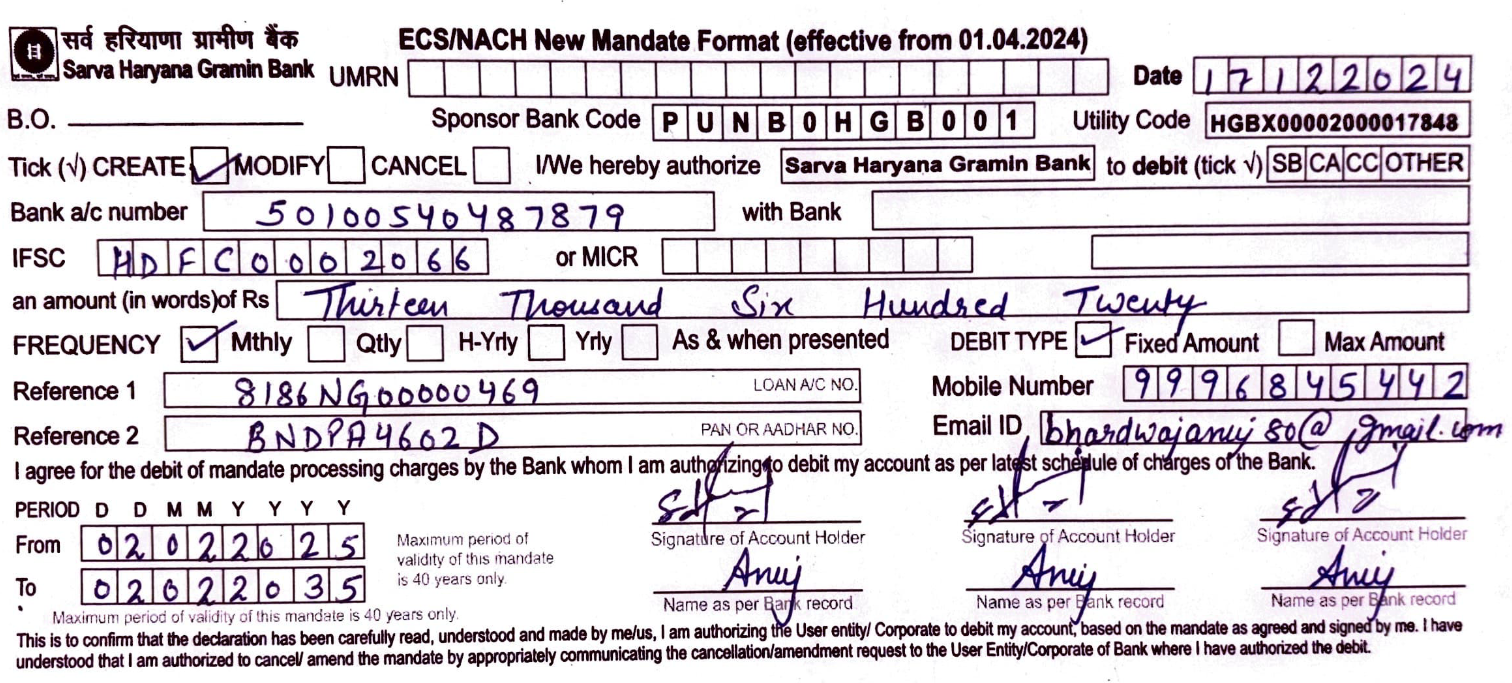 सर्व हरियाणा ग्रामीण बैंक
Sarva Haryana Gramin Bank
ECS/NACH New Mandate Format (effective from 01.04.2024)
UMRN Date 17122024
B.O. Sponsor Bank Code PUNB0HGB001 Utility Code HGBX00002000017848
Tick (√) CREATE ✓ MODIFY CANCEL I/We hereby authorize Sarva Haryana Gramin Bank to debit (tick √) SB CA CC OTHER
Bank a/c number 50100540487879 with Bank
IFSC HDFC0002066 or MICR
an amount (in words)of Rs Thirteen Thousand Six Hundred Twenty
FREQUENCY ✓ Mthly Qtly H-Yrly Yrly As & when presented DEBIT TYPE ✓ Fixed Amount Max Amount
Reference 1 8186NG00000469 LOAN A/C NO. Mobile Number 9996845442
Reference 2 BNDPA4602D PAN OR AADHAR NO. Email ID bhardwajanuj80@gmail.com
I agree for the debit of mandate processing charges by the Bank whom I am authorizing to debit my account as per latest schedule of charges of the Bank.
PERIOD D D M M Y Y Y Y
From 02022025 Maximum period of validity of this mandate is 40 years only. Signature of Account Holder Signature of Account Holder Signature of Account Holder
To 02022035 Anuj Anuj Anuj
Name as per Bank record Name as per Bank record Name as per Bank record
Maximum period of validity of this mandate is 40 years only.
This is to confirm that the declaration has been carefully read, understood and made by me/us, I am authorizing the User entity/ Corporate to debit my account, based on the mandate as agreed and signed by me. I have
understood that I am authorized to cancel/ amend the mandate by appropriately communicating the cancellation/amendment request to the User Entity/Corporate of Bank where I have authorized the debit.